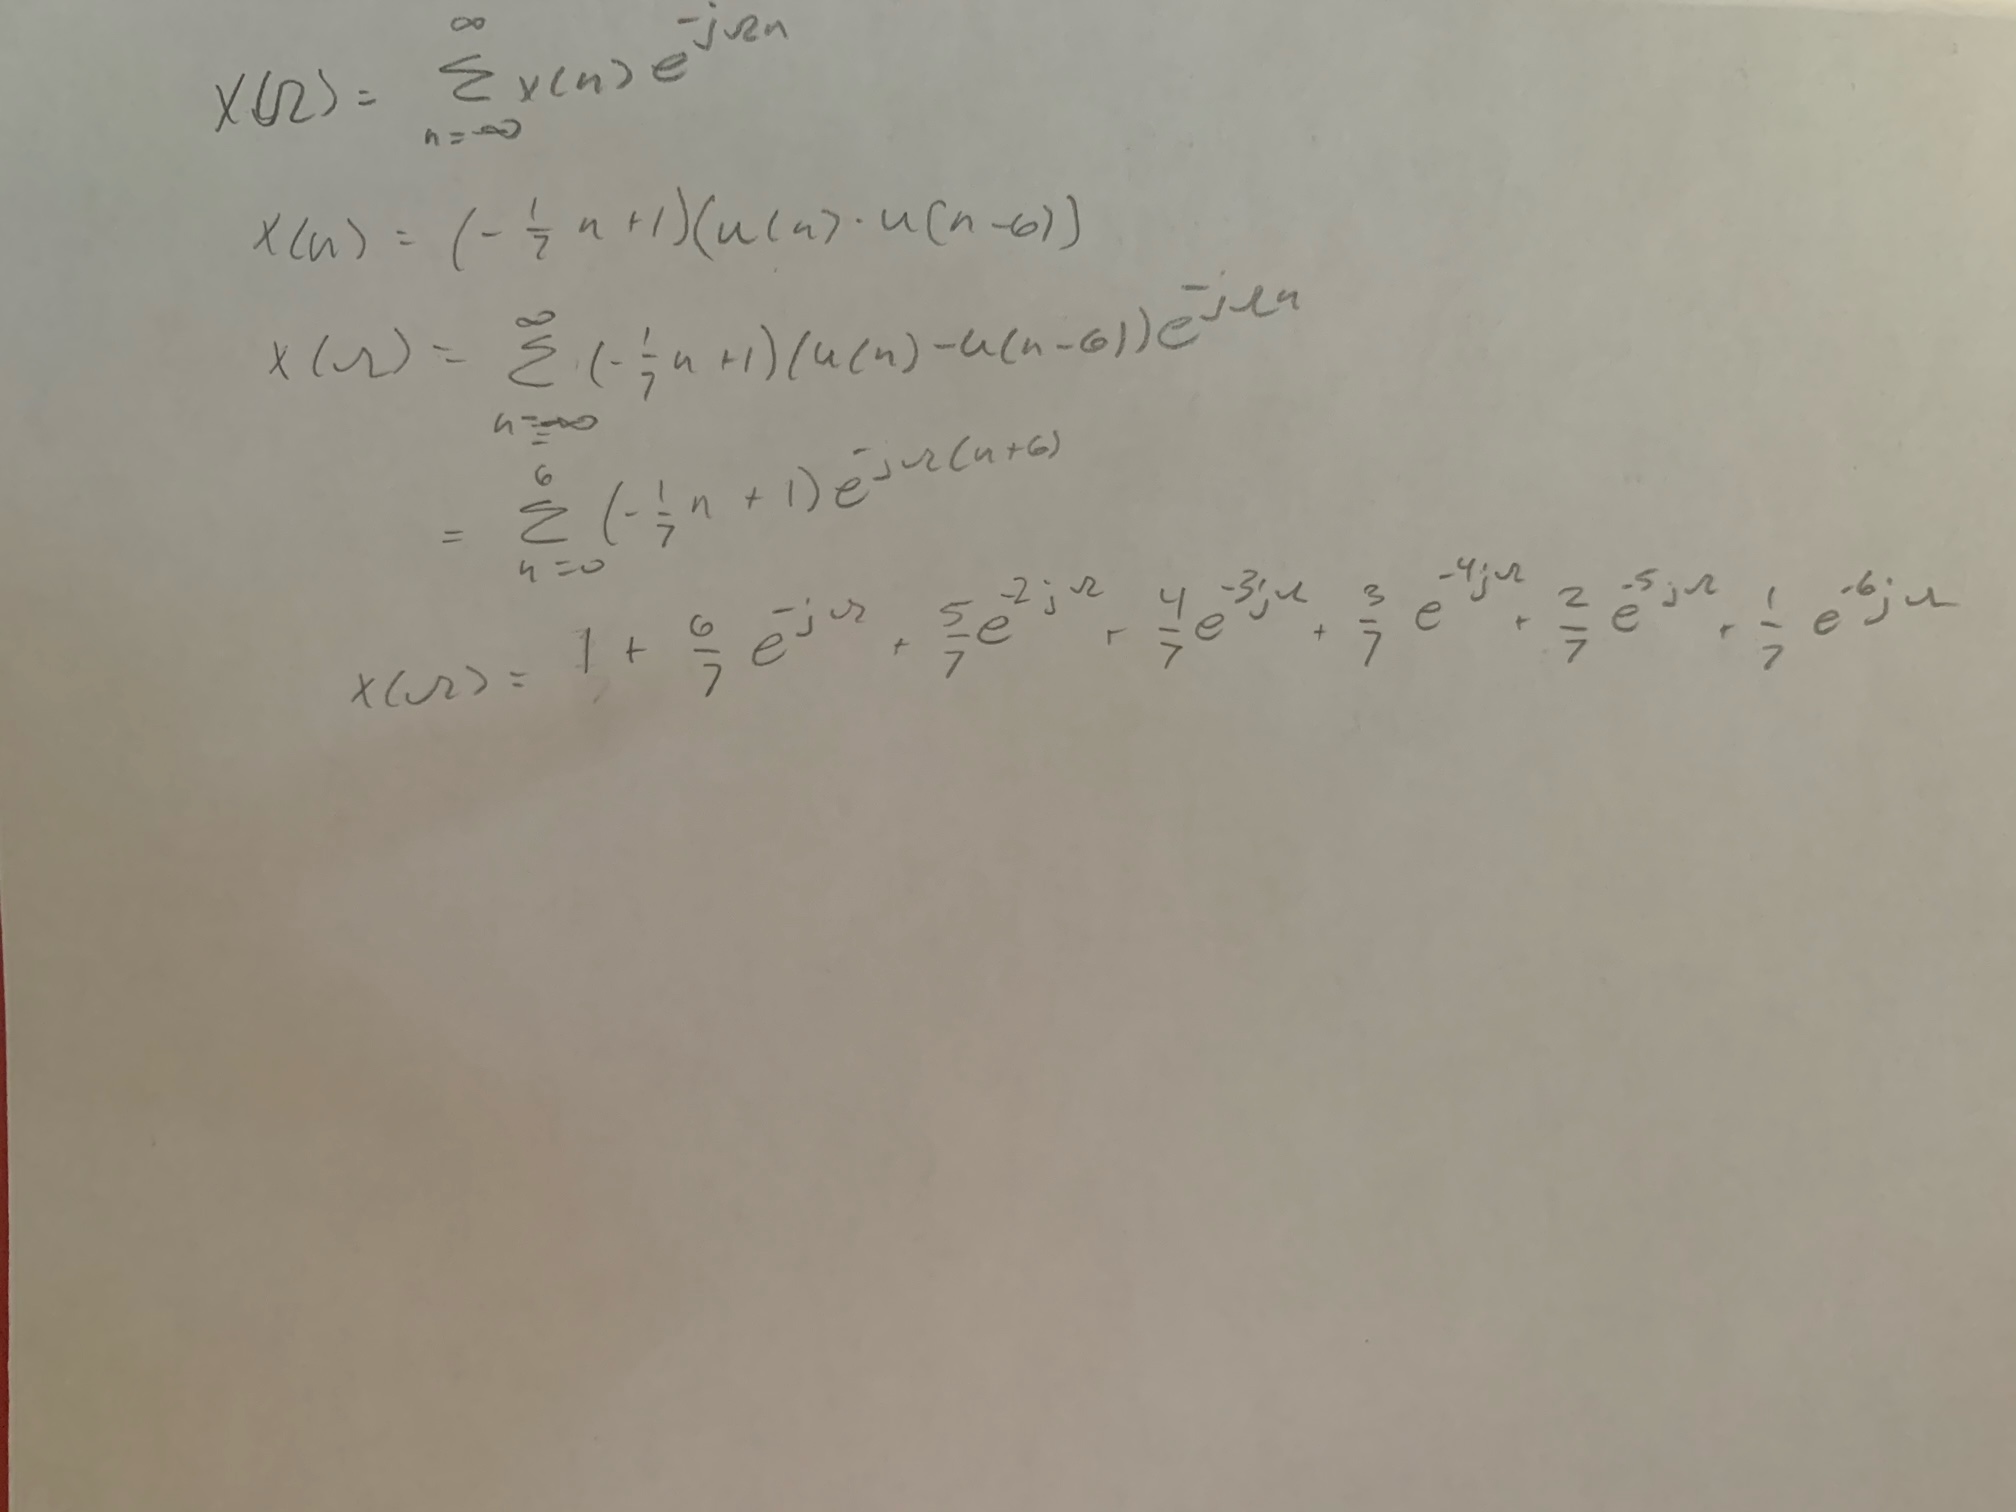 X(Ω) = ∞ Σ n=-∞ x(n) e^{-jΩn}
x(n) = (-1/7 n + 1)(u(n) · u(n-6))
X(Ω) = ∞ Σ n=-∞ (-1/7 n + 1)(u(n) - u(n-6)) e^{-jΩn}
= 6 Σ n=0 (-1/7 n + 1) e^{-jΩ(n+6)}
X(Ω) = 1 + 6/7 e^{-jΩ} + 5/7 e^{-2jΩ} + 4/7 e^{-3jΩ} + 3/7 e^{-4jΩ} + 2/7 e^{-5jΩ} + 1/7 e^{-6jΩ}